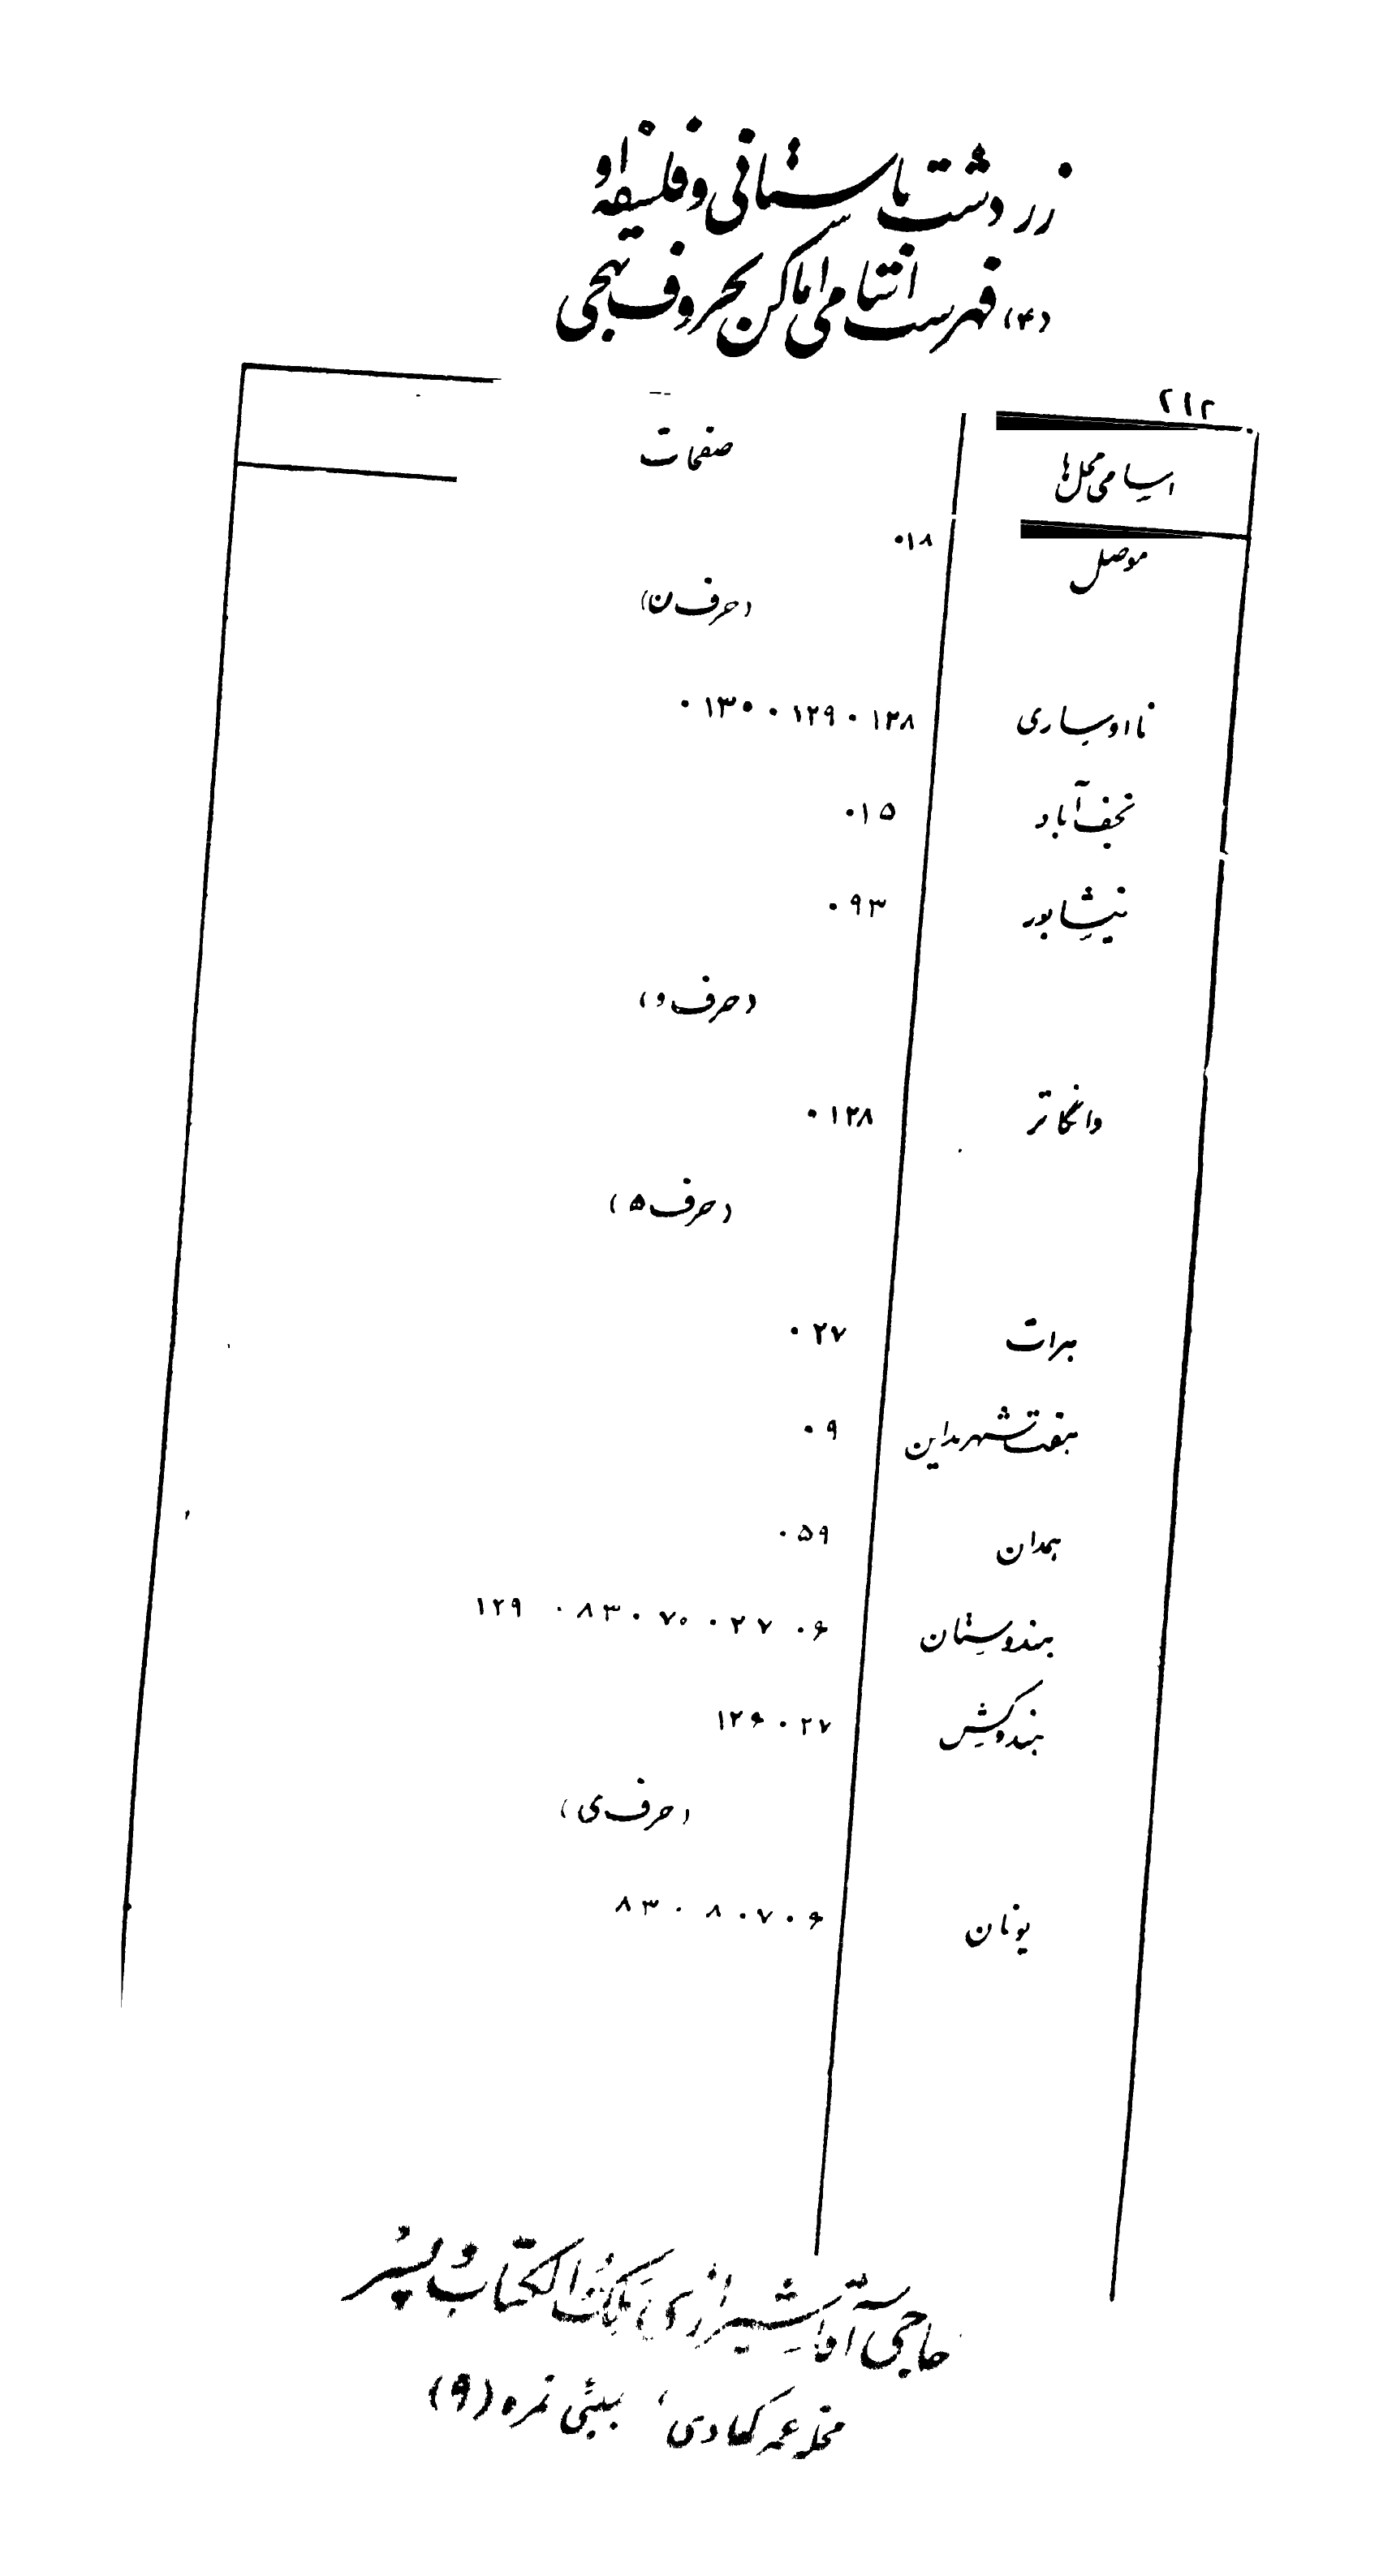 زردشت باستانی و فلسفه او
(۴) فهرست اسامی اماکن بحروف تهجی
۲۱۲
اسامی محل‌ها صفحات
موصل ۱۸۰
(حرف ن)
نااوساری ۱۲۸۰ ۱۲۹۰ ۱۳۰۰
نجف آباد ۱۵۰
نیشابور ۹۳۰
(حرف و)
وانگانر ۱۲۸۰
(حرف ه)
هرات ۲۷۰
هفت شهر مداین ۹۰
همدان ۵۹۰
هندوستان ۶۰ ۲۷۰ ۷۰۰ ۸۳۰ ۱۲۹
هندوکش ۲۷۰ ۱۲۶
(حرف ی)
یونان ۶۰ ۷۰ ۸۰ ۸۳
حاجی آقای شیرازی ملک الکتاب و پسر
محله عمر کهادی، بمبئی نمره (۹)